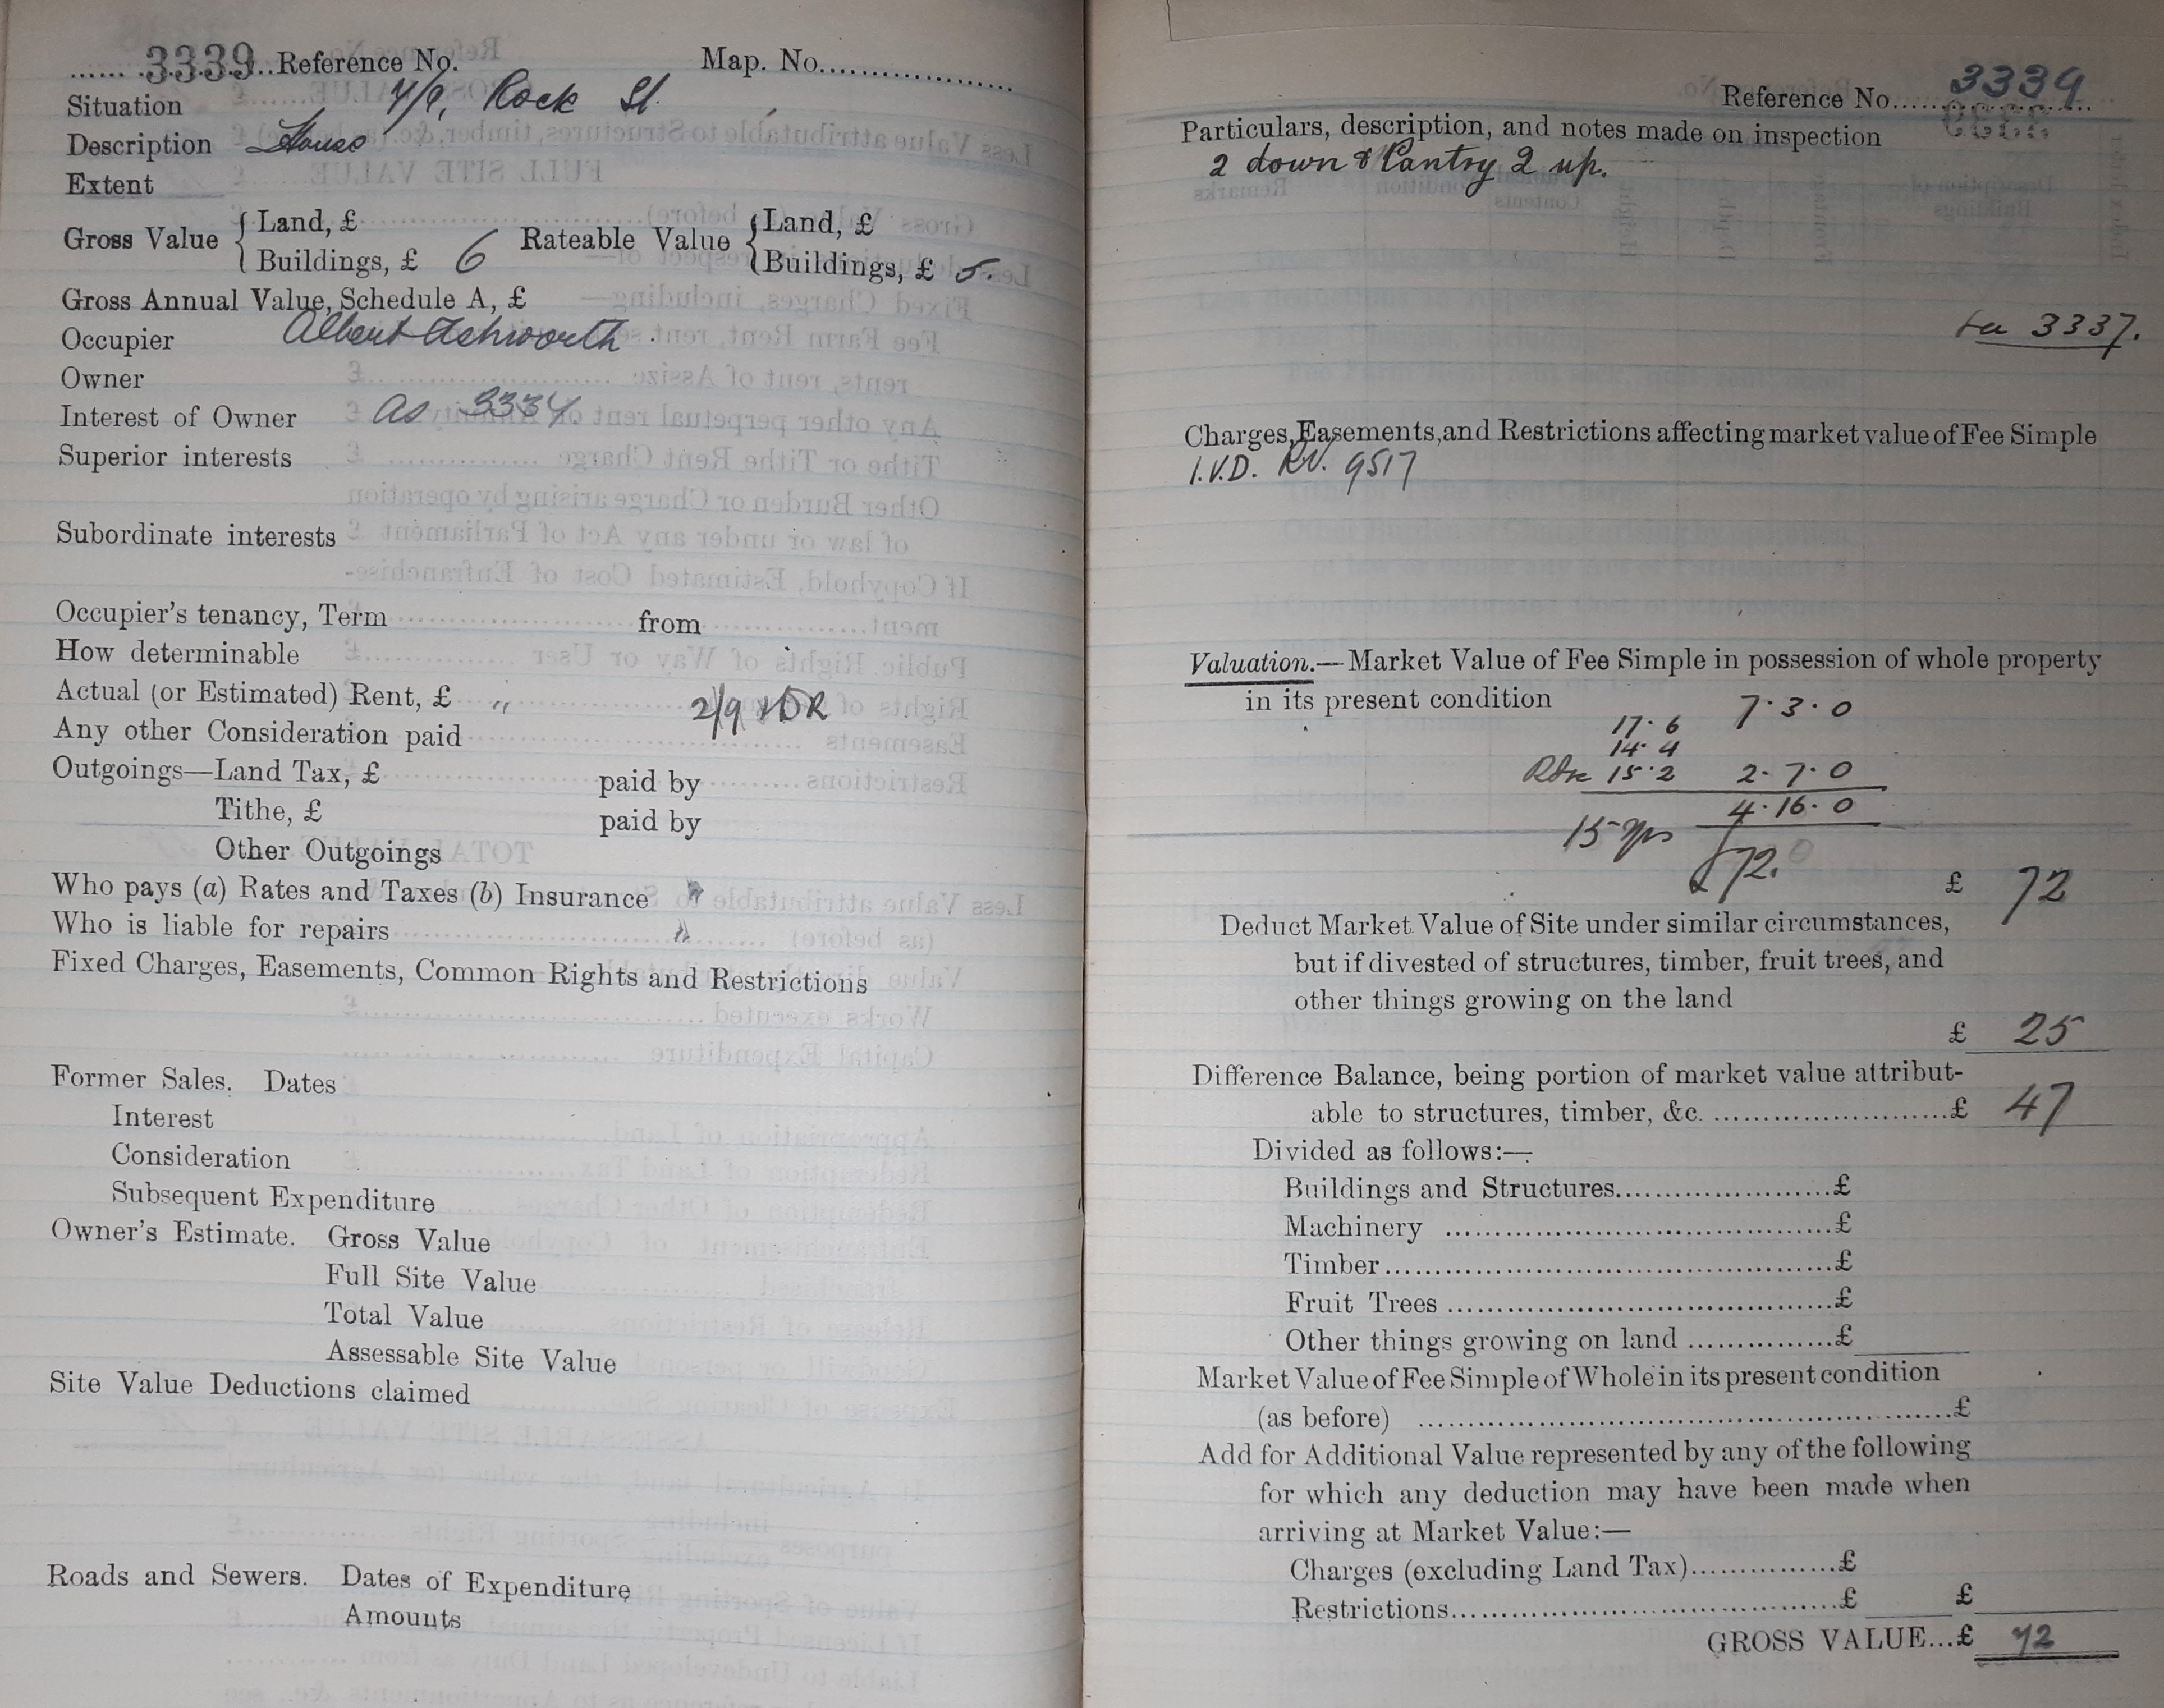 3339 Reference No. Map. No.
Situation 7/9, Rock St.
Description House
Extent
Gross Value { Land, £ Rateable Value { Land, £
Buildings, £ 6 Buildings, £ 5.
Gross Annual Value, Schedule A, £
Occupier Albert Ashworth
Owner
Interest of Owner As 3334
Superior interests
Subordinate interests
Occupier's tenancy, Term from
How determinable
Actual (or Estimated) Rent, £ " 2/9
Any other Consideration paid
Outgoings—Land Tax, £ paid by
Tithe, £ paid by
Other Outgoings
Who pays (a) Rates and Taxes (b) Insurance "
Who is liable for repairs "
Fixed Charges, Easements, Common Rights and Restrictions
Former Sales. Dates
Interest
Consideration
Subsequent Expenditure
Owner's Estimate. Gross Value
Full Site Value
Total Value
Assessable Site Value
Site Value Deductions claimed
Roads and Sewers. Dates of Expenditure
Amounts
Reference No. 3339
Particulars, description, and notes made on inspection
2 down & Pantry 2 up.
3337.
Charges, Easements, and Restrictions affecting market value of Fee Simple
I.V.D. RV. 9517
Valuation.—Market Value of Fee Simple in possession of whole property
in its present condition 7.3.0
17.6
14.4
15.2 2.7.0
4.16.0
15 yrs
£72.
£ 72
Deduct Market Value of Site under similar circumstances,
but if divested of structures, timber, fruit trees, and
other things growing on the land
£ 25
Difference Balance, being portion of market value attribut-
able to structures, timber, &c. £ 47
Divided as follows:—
Buildings and Structures £
Machinery £
Timber £
Fruit Trees £
Other things growing on land £
Market Value of Fee Simple of Whole in its present condition
(as before) £
Add for Additional Value represented by any of the following
for which any deduction may have been made when
arriving at Market Value:—
Charges (excluding Land Tax) £
Restrictions £ £
GROSS VALUE... £ 72